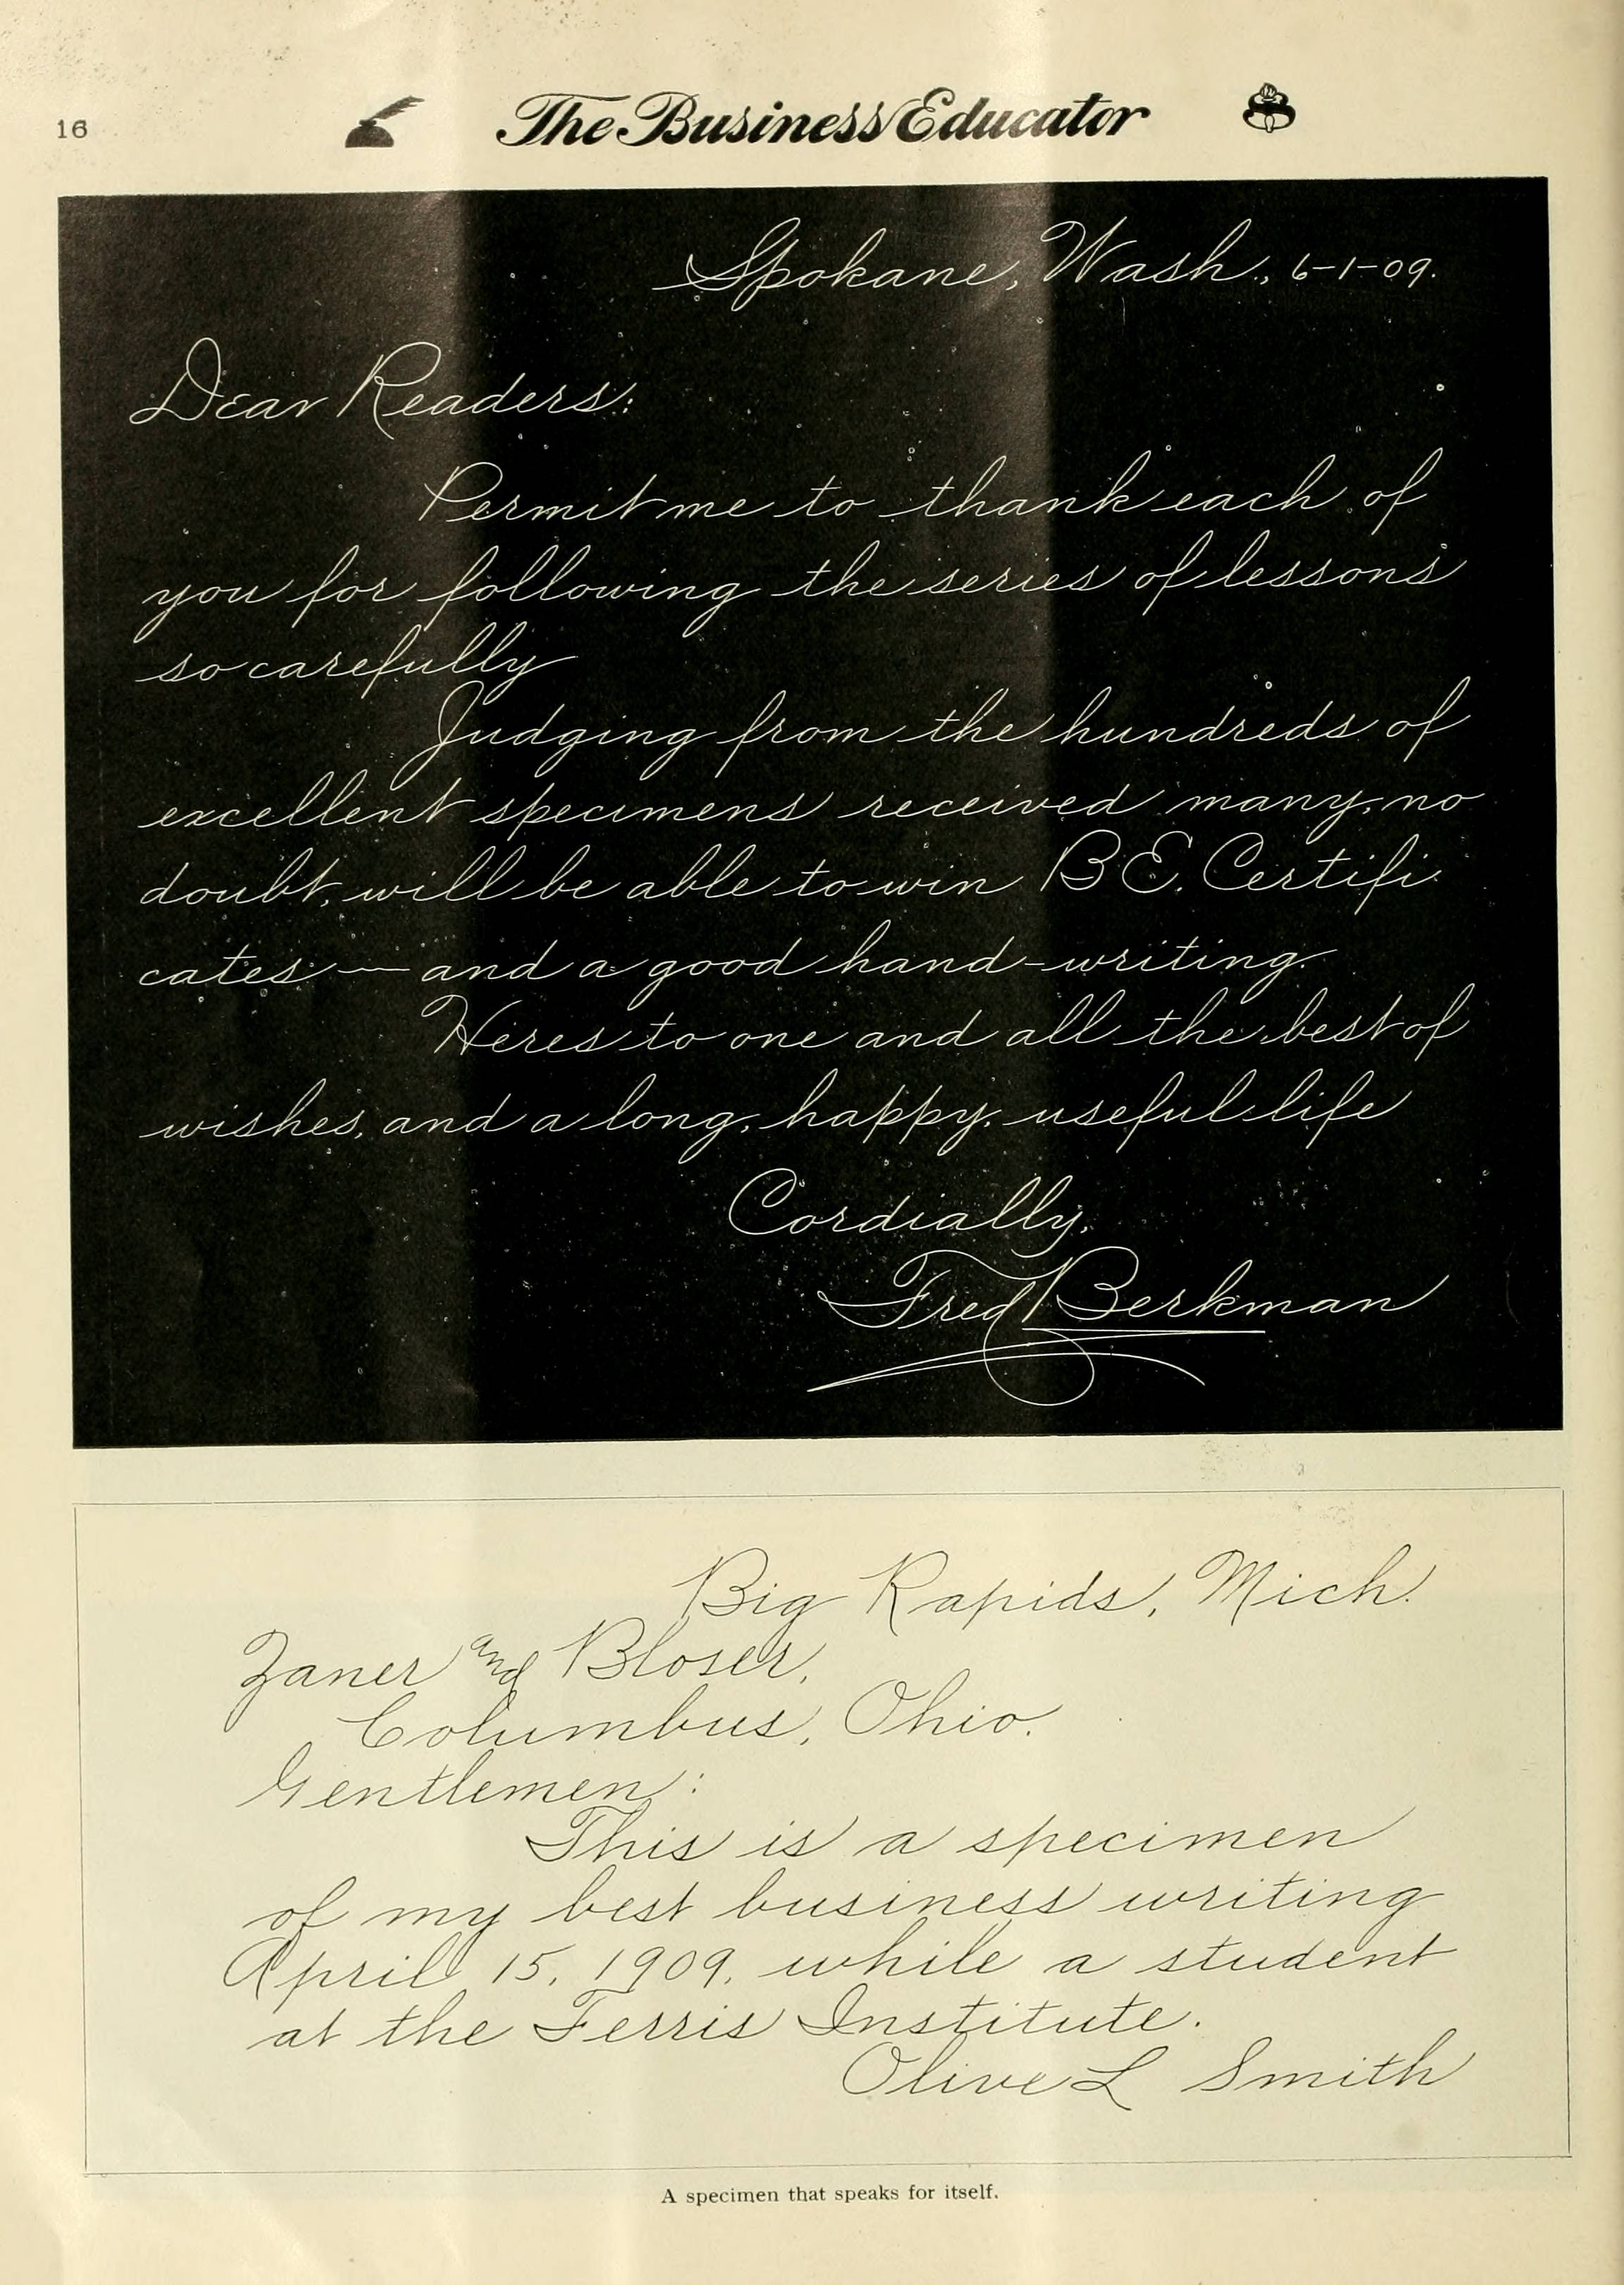 16
The Business Educator
Spokane, Wash., 6-1-09.
Dear Readers:
Permit me to thank each of
you for following the series of lessons
so carefully
Judging from the hundreds of
excellent specimens received many, no
doubt, will be able to win B.E. Certifi-
cates — and a good hand-writing.
Heres to one and all the best of
wishes, and a long, happy, useful life
Cordially,
Fred Berkman
Big Rapids, Mich.
Zaner and Bloser,
Columbus, Ohio.
Gentlemen:
This is a specimen
of my best business writing
April 15, 1909, while a student
at the Ferris Institute.
Olive L Smith
A specimen that speaks for itself.